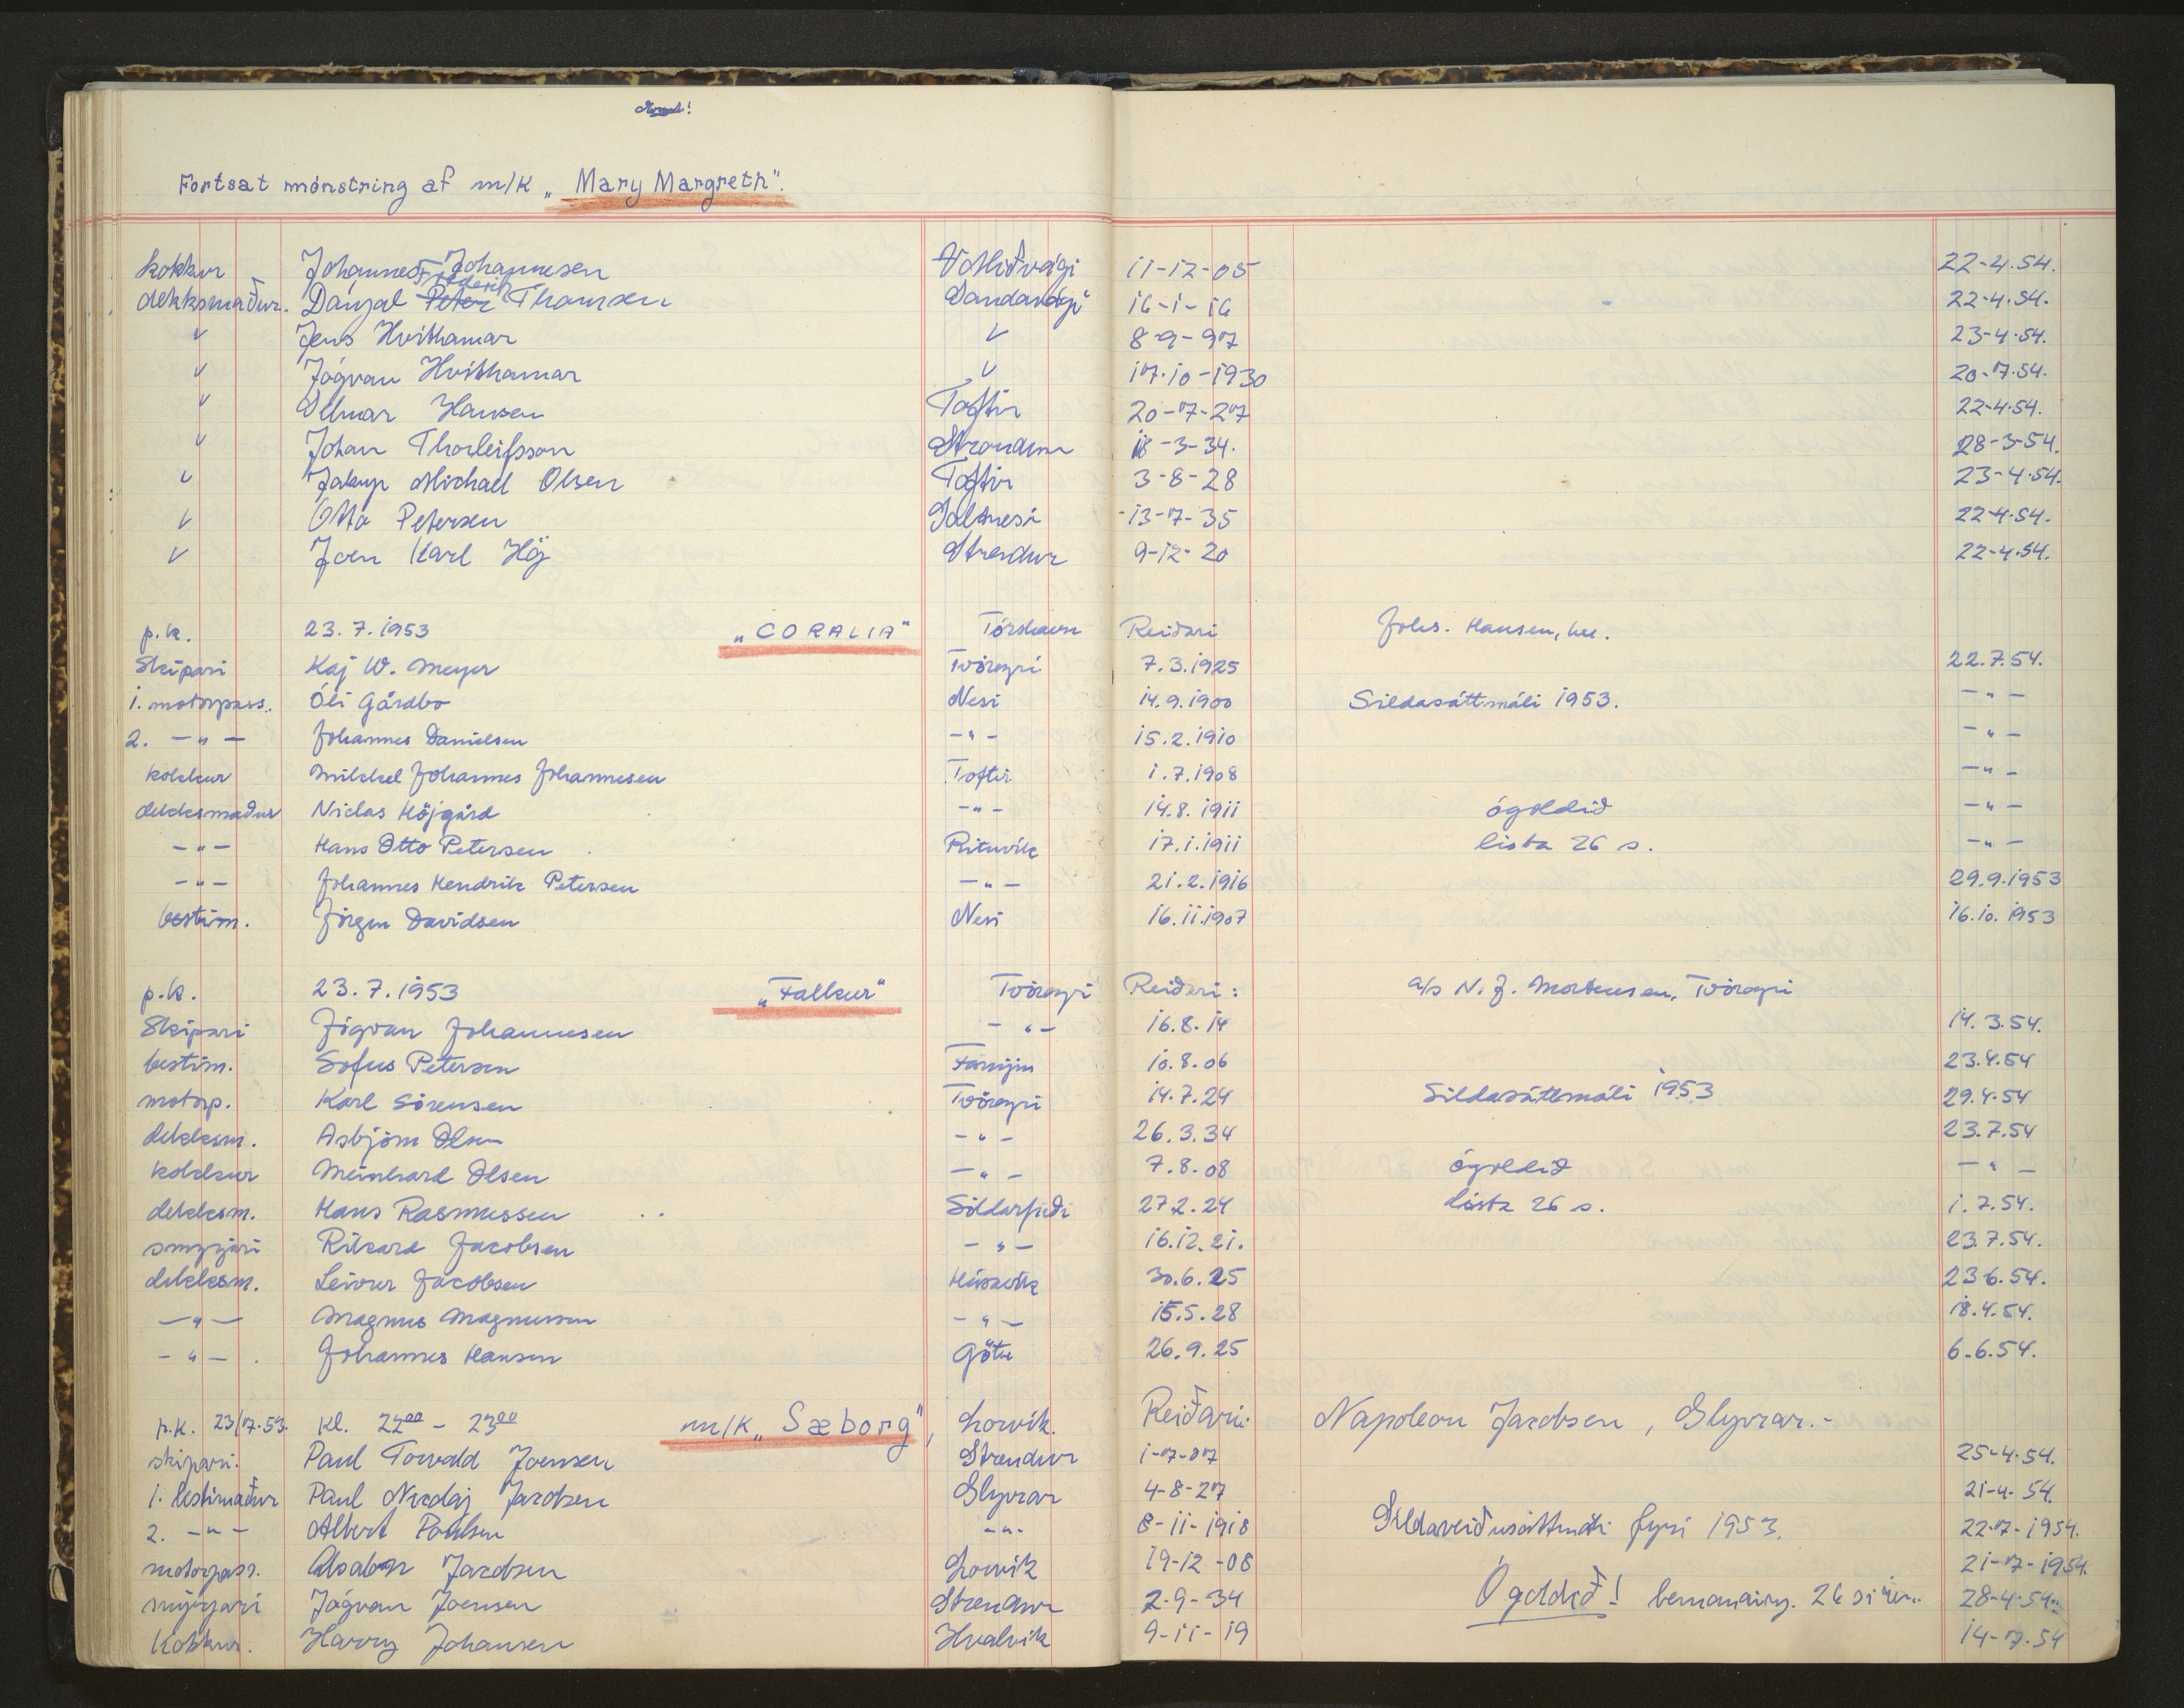 Fortsat mónstring af m/k „Mary Margreth".
kokkur Johannes Johannesen Miðvági 11-12-05 22-4.54.
Frederik
dekksmaður. Dánjal Peter Thomsen Sandavági 16-1-16 22-4.54.
√ Jens Hvithamar √ 8-9-97 23-4.54.
√ Jógvan Hvithamar √ 17.10-1930 20-7.54.
√ Delmar Hansen Toftir 20-7-27 22-4.54.
√ Johan Thorleifsson Strondum 18-3-34. 28-3-54.
√ Jakup Michael Olsen Toftir 3-8-28 23-4.54.
√ Otto Petersen Saltnesi 13-7-35 22-4.54.
√ Joen Karl Höj Strendur 9-12-20 22-4.54.
p.k. 23.7.1953 „CORALIA" Tórshavn Reiðari Johs. Hansen, her.
Skipari Kaj W. Meyer Tvöroyri 7.3.1925 22.7.54.
1. motorpass. Óli Gårdbo Nesi 14.9.1900 Sildasáttmáli 1953. -"-
2. -"- Johannes Danielsen -"- 15.2.1910 -"-
kokkur Mikkel Johannes Johannesen Toftir 1.7.1908 -"-
dekksmaður Niclas Höjgård -"- 14.8.1911 ógoldið -"-
-"- Hans Otto Petersen Rituvík 17.1.1911 lista 26 s. -"-
-"- Johannes Hendrik Petersen -"- 21.2.1916 29.9.1953
bestim. Jörgen Davidsen Nesi 16.11.1907 16.10.1953
p.k. 23.7.1953 „Falkur" Tvöroyri Reiðari: a/s N. J. Mortensen, Tvöroyri
Skipari Jógvan Johannesen -"- 16.8.14 14.3.54.
bestim. Sofus Petersen Famjin 10.8.06 23.4.54
motorp. Karl Sörensen Tvöroyri 14.7.24 Sildasáttmáli 1953 29.4.54
dekksm. Asbjörn Olsen -"- 26.3.34 23.7.54
kokkur Meinhard Olsen -"- 7.8.08 ógoldið -"-
dekksm. Hans Rasmussen Söldarfirði 27.2.24 lista 26 s. 1.7.54.
smyrjari Rikard Jacobsen -"- 16.12.21. 23.7.54.
dekksm. Leivur Jacobsen Húsavík 30.6.25 23.6.54.
-"- Magnus Magnussen -"- 15.5.28 18.4.54.
-"- . Johannes Hansen Götu 26.9.25 6.6.54.
p.k. 23/7.53. Kl. 22⁰⁰ - 23⁰⁰ m/k „Sæborg", Lorvík. Reiðari: Napoleon Jacobsen, Glyvrar.-
skipari: Paul Torvald Joensen Strendur 1-7-07 25-4.54.
1. bestimaður Paul Nicolaj Jacobsen Glyvrar 4-8-27 21-4.54.
2. -"- Albert Poulsen -"- 8-11-1918 Sildaveiðusáttmáli fyri 1953. 22-7-1954.
motorpass. Absalon Jacobsen Lorvík 19-12-08 21-7-1954.
smyrjari Jógvan Joensen Strendur 2-9-34 Ógoldið! bemanning. 26 28-4.54.
Kokkur. Harry Johansen Hvalvík 9-11-19 14-7.54